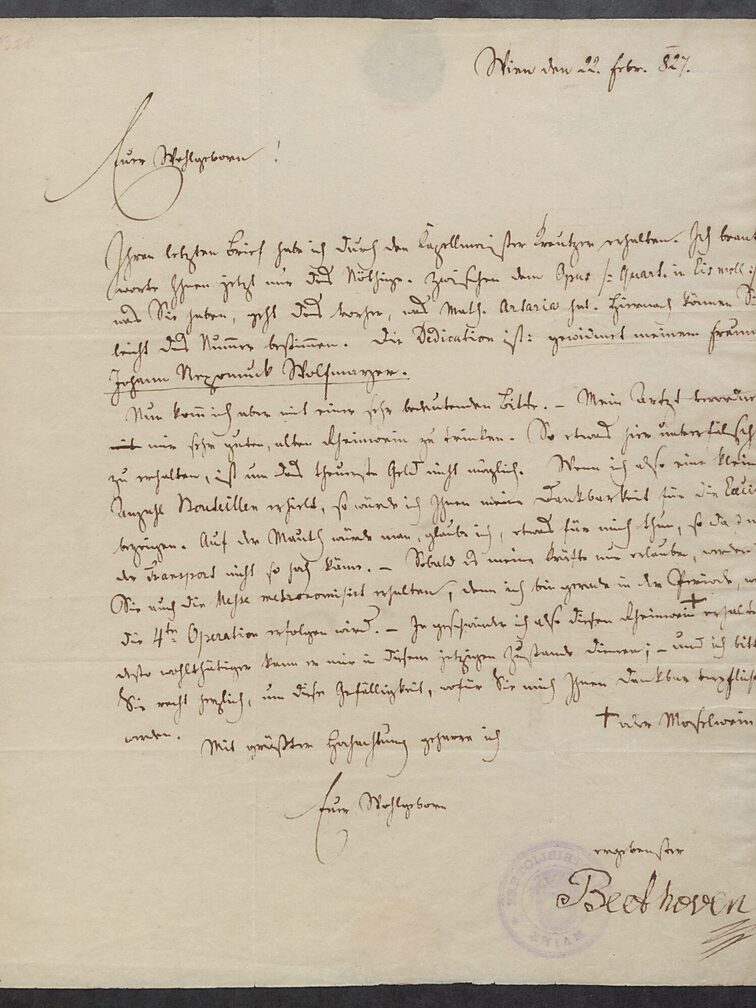 Wien den 22. Febr. 827.
Euer Wohlgeborn!
Ihren letzten Brief habe ich durch den Kapellmeister Kreutzer erhalten. Ich beant
worte Ihnen jetzt nur das Nöthige. Zwischen dem Opus /: Quart. in Cis moll :/
was Sie haben, geht das vorher, was Math. Artaria hat. Hiernach können Si
leicht das Nummer bestimmen. Die Dedication ist: gewidmet meinem Freun
Johann Nepomuck Wolfmayer.
Nun komm ich aber mit einer sehr bedeutenden Bitte. – Mein Artzt verordne
mir sehr guten, alten Rheinwein zu trinken. So etwas hier unverfälsch
zu erhalten, ist um das theuerste Geld nicht möglich. Wenn ich also eine klein
Anzahl Bouteillen erhielt, so würde ich Ihnen meine Dankbarkeit für die Cäci
bezeigen. Auf der Mauth würde man, glaube ich, etwas für mich thun, so daß
der Transport nicht so hoch käme. – Sobald es meine Kräfte nur erlauben, werden
Sie auch die Messe metronomisirt erhalten, denn ich bin gerade in der Periode, w
die 4te Operation erfolgen wird. – Je geschwinder ich also diesen Rheinwein † erhalte
desto wohlthätiger kann er mir in diesem jetzigen Zustande dienen; – und ich bitt
Sie recht herzlich, um diese Gefälligkeit, wofür Sie mich Ihnen dankbar verpflich
werden.
† oder Moselwein
Mit größter Hochachtung geharre ich
Euer Wohlgeborn
ergebenster
Beethoven